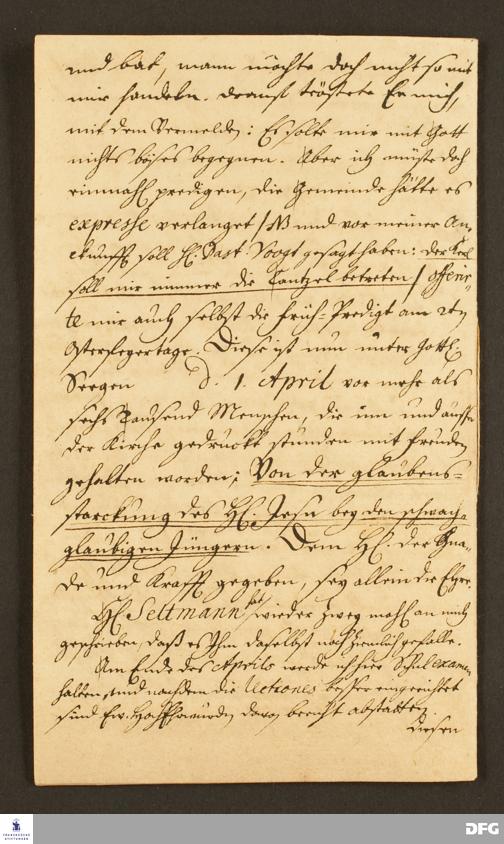 und bat, mann möchte doch nicht so mit
mir handeln. Drauf tröstete Er mich,
mit dem Vermelden: Es solte mir mit Gott
nichts böses begegnen. Aber ich müste doch
einmahl predigen, die Gemeinde hätte es
expresse verlanget /: NB und vor meiner An-
kunfft soll H. Past. Voogt gesagt haben: der Kerl
soll mir nimmer die Cantzel betreten / offerir-
te mir auch selbst die Früh-Predigt am 2ten
Osterfeyertage. Diese ist nun unter Göttl.
Seegen d. 1. April vor mehr als
sechs Tausend Menschen, die inn und aussen
der Kirche gedruckt stunden mit Freuden
gehalten worden: Von der Glaubens-
starckung des H. Jesu bey den schwach-
glaubigen Jüngern. Dem H. der Gna-
de und Krafft gegeben, sey allein die Ehre.
H. Settmann hat wieder zwey mahl an mich
geschrieben, daß es Ihm daselbst noch ziemlich gefalle.
Am Ende des Aprils werde ich hier Schul examen
halten, und nachdem die Lectiones besser eingerichtet
sind Ew. Hochehrwürden davon bericht abstatten.
diesen
FRANCKESCHE STIFTUNGEN
DFG